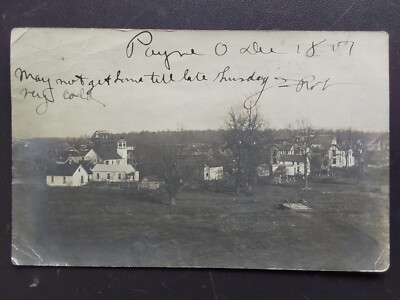 Payne O Dec 18 07
May not get home till late Thursday - Rob
very cold